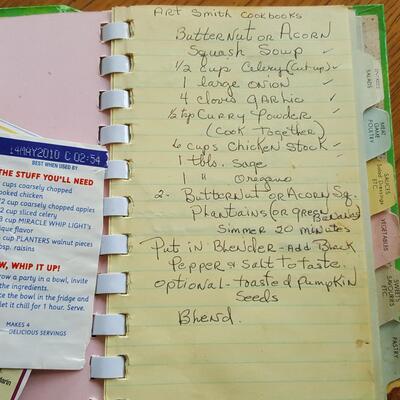 ART Smith Cookbooks
Butternut or Acorn
Squash Soup
1/2 cup Celery (Cut up)
1 large onion
4 cloves garlic
1/2 tsp Curry Powder
(Cook Together)
6 cups Chicken Stock
1 tbls. Sage
1 " Oregano
2 - Butternut or Acorn Sq.
Plantains (or green Bananas)
Simmer 20 minutes
Put in Blender - Add Black
Pepper & Salt to Taste.
Optional - toasted Pumpkin
Seeds
Blend.
14MAY2010 C 02:54
BEST WHEN USED BY
THE STUFF YOU'LL NEED
cups coarsely chopped
cooked chicken
cups coarsely chopped apples
/2 cup sliced celery
cup MIRACLE WHIP LIGHT's
ique flavor
cup PLANTERS walnut pieces
bsp. raisins
W, WHIP IT UP!
row a party in a bowl, invite
the ingredients.
te the bowl in the fridge and
let it chill for 1 hour. Serve.
MAKES 4
DELICIOUS SERVINGS
Marin
SALADS
MEAT
GAME
POULTRY
SAUCES
Salad Dressings
ETC.
VEGETABLES
SWEETS
SAVOURIES
ETC.
PASTRY